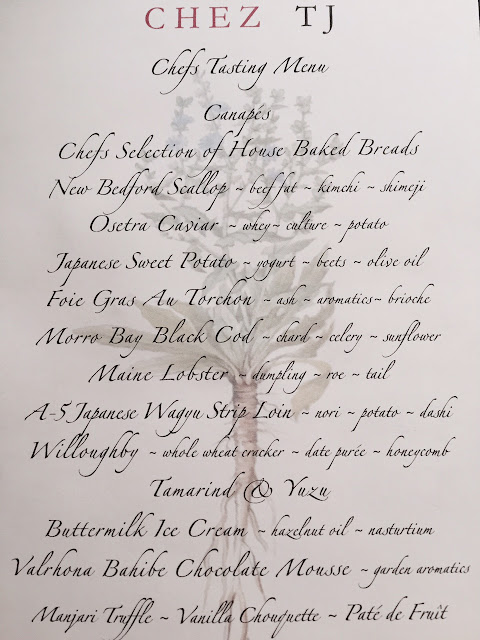 CHEZ TJ
Chefs Tasting Menu
Canapés
Chefs Selection of House Baked Breads
New Bedford Scallop ~ beef fat ~ kimchi ~ shimeji
Osetra Caviar ~ whey ~ culture ~ potato
Japanese Sweet Potato ~ yogurt ~ beets ~ olive oil
Foie Gras Au Torchon ~ ash ~ aromatics ~ brioche
Morro Bay Black Cod ~ chard ~ celery ~ sunflower
Maine Lobster ~ dumpling ~ roe ~ tail
A-5 Japanese Wagyu Strip Loin ~ nori ~ potato ~ dashi
Willoughby ~ whole wheat cracker ~ date purée ~ honeycomb
Tamarind & Yuzu
Buttermilk Ice Cream ~ hazelnut oil ~ nasturtium
Valrhona Bahibe Chocolate Mousse ~ garden aromatics
Manjari Truffle ~ Vanilla Chouquette ~ Paté de Fruît